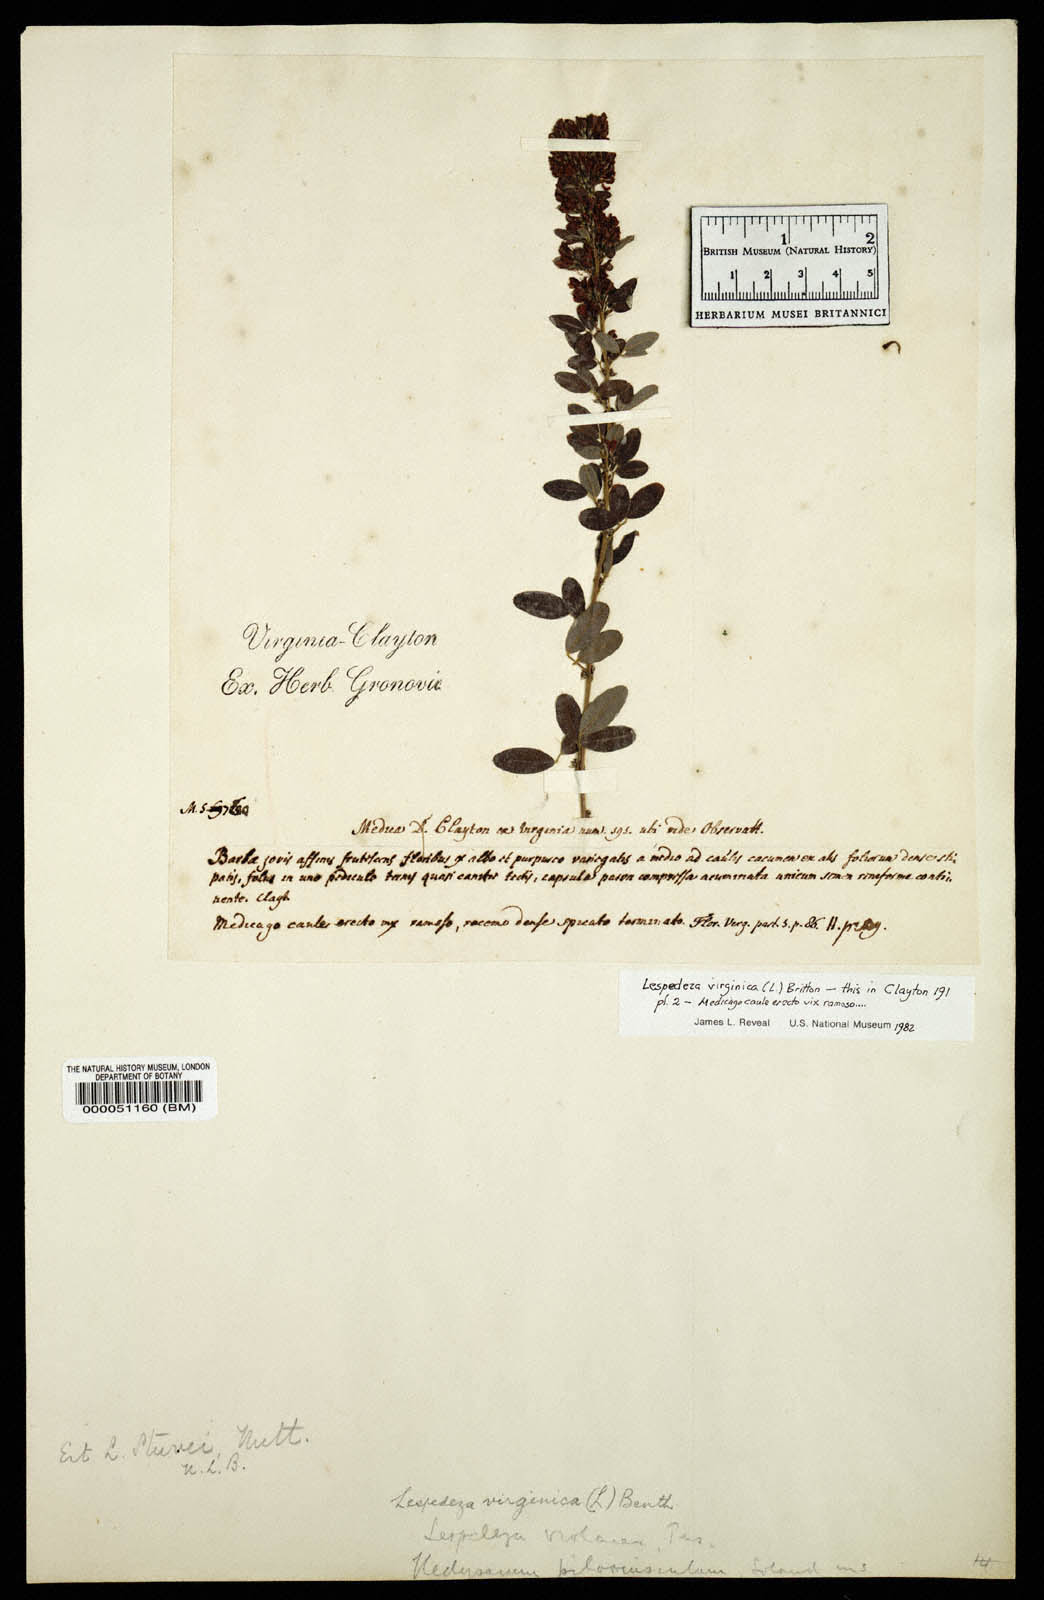 1 2
BRITISH MUSEUM (NATURAL HISTORY)
1 2 3 4 5
HERBARIUM MUSEI BRITANNICI
Virginia-Clayton
Ex. Herb. Gronovii
M. S.
Medica D. Clayton ex Virginia num. 191. ubi vide Observatt.
Barbæ jovis affinis frutescens floribus ex albo et purpureo variegatis a medio ad caulis cacumen ex alis foliorum dense sti:
patis, foliis in uno pediculo ternis quasi canitie tectis, capsula parva compressa acuminata unicum semen reniforme conti:
nente. Clayt.
Medicago caule erecto vix ramoso, racemo dense spicato terminato. Flor. Virg. part. 2. p. 86.
Lespedeza virginica (L.) Britton — this in Clayton 191
pl. 2 — Medicago caule erecto vix ramoso....
James L. Reveal U.S. National Museum 1982
THE NATURAL HISTORY MUSEUM, LONDON
DEPARTMENT OF BOTANY
000051160 (BM)
Est L. Stuvei, Nutt.
N. L. B.
Lespedeza virginica (L) Benth
Lespedeza violacea, Pers.
Hedysarum pilosiusculum Soland ms